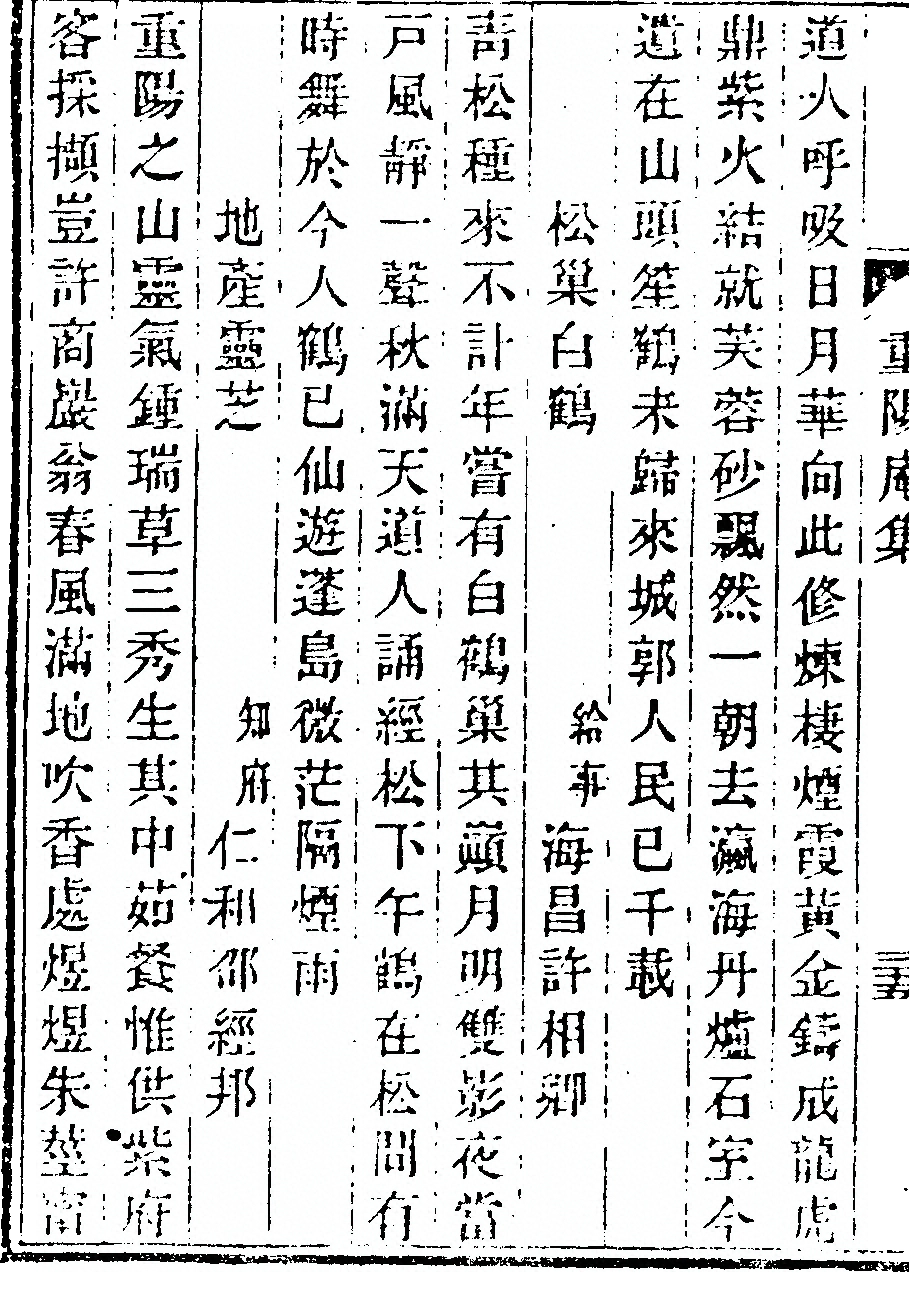 重陽庵集
三五
道人呼吸日月華向此修煉棲煙霞黃金鑄成龍虎
鼎紫火結就芙蓉砂飄然一朝去瀛海丹爐石室今
遺在山頭笙鶴未歸來城郭人民已千載
松巢白鶴 給事海昌許相卿
青松種來不計年嘗有白鶴巢其巔月明雙影夜當
戶風靜一聲秋滿天道人誦經松下午鶴在松間有
時舞於今人鶴已仙遊蓬島微茫隔煙雨
地產靈芝 知府仁和邵經邦
重陽之山靈氣鍾瑞草三秀生其中茹餐惟供紫府
客採擷豈許商巖翁春風滿地吹香處煜煜朱莖